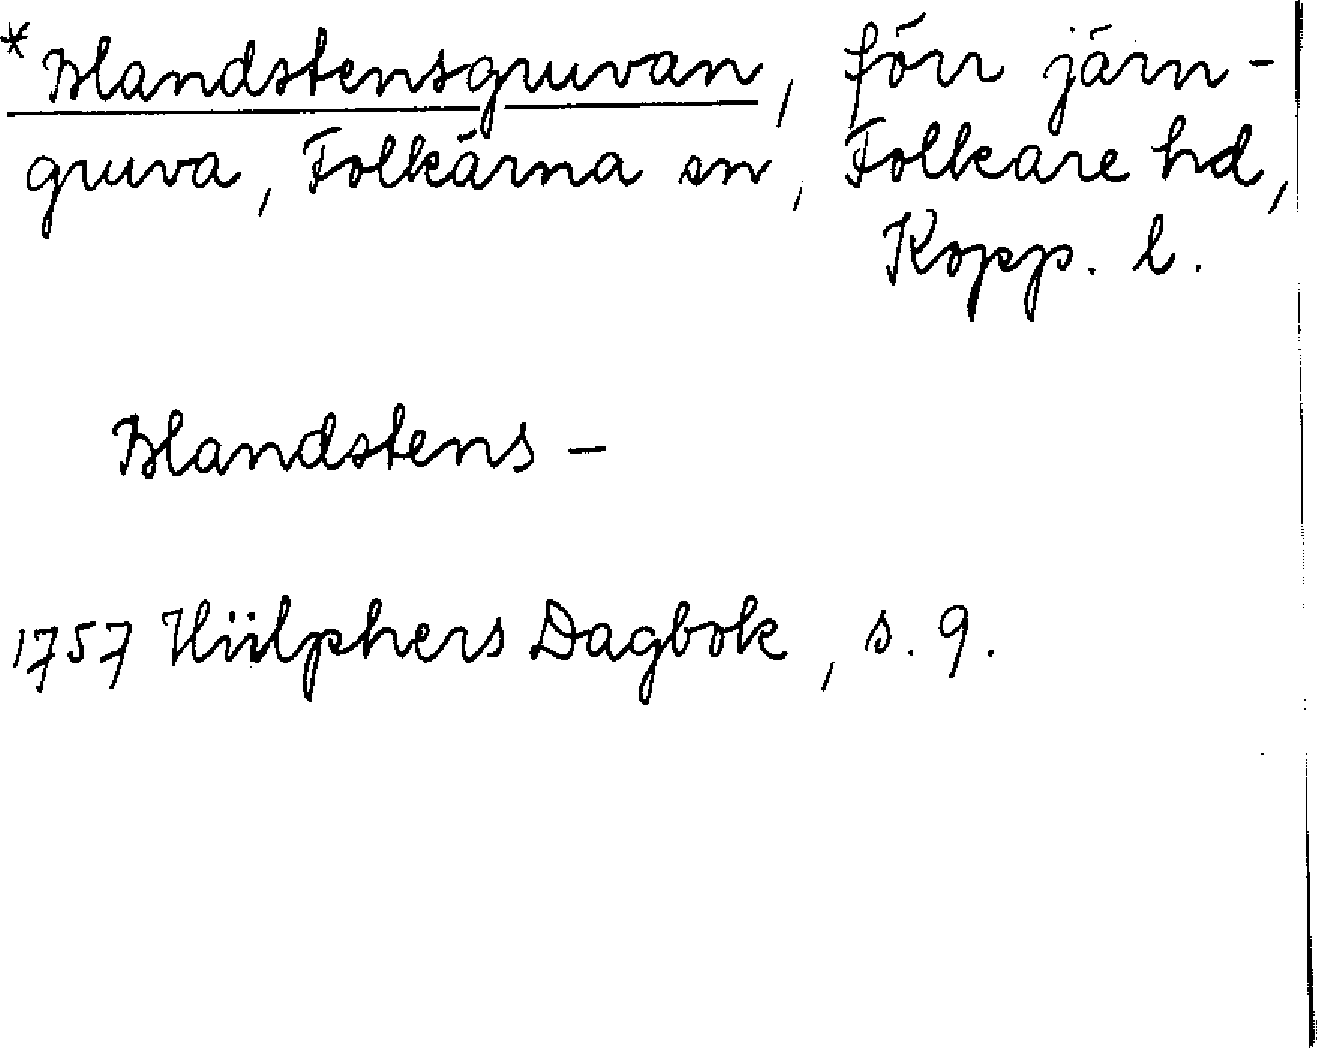 *Blandstensgruvan, förr järn-
gruva, Folkärna sn, Folkare hd,
Kopp. l.
Blandstens -
1757 Hülphers Dagbok, s. 9.